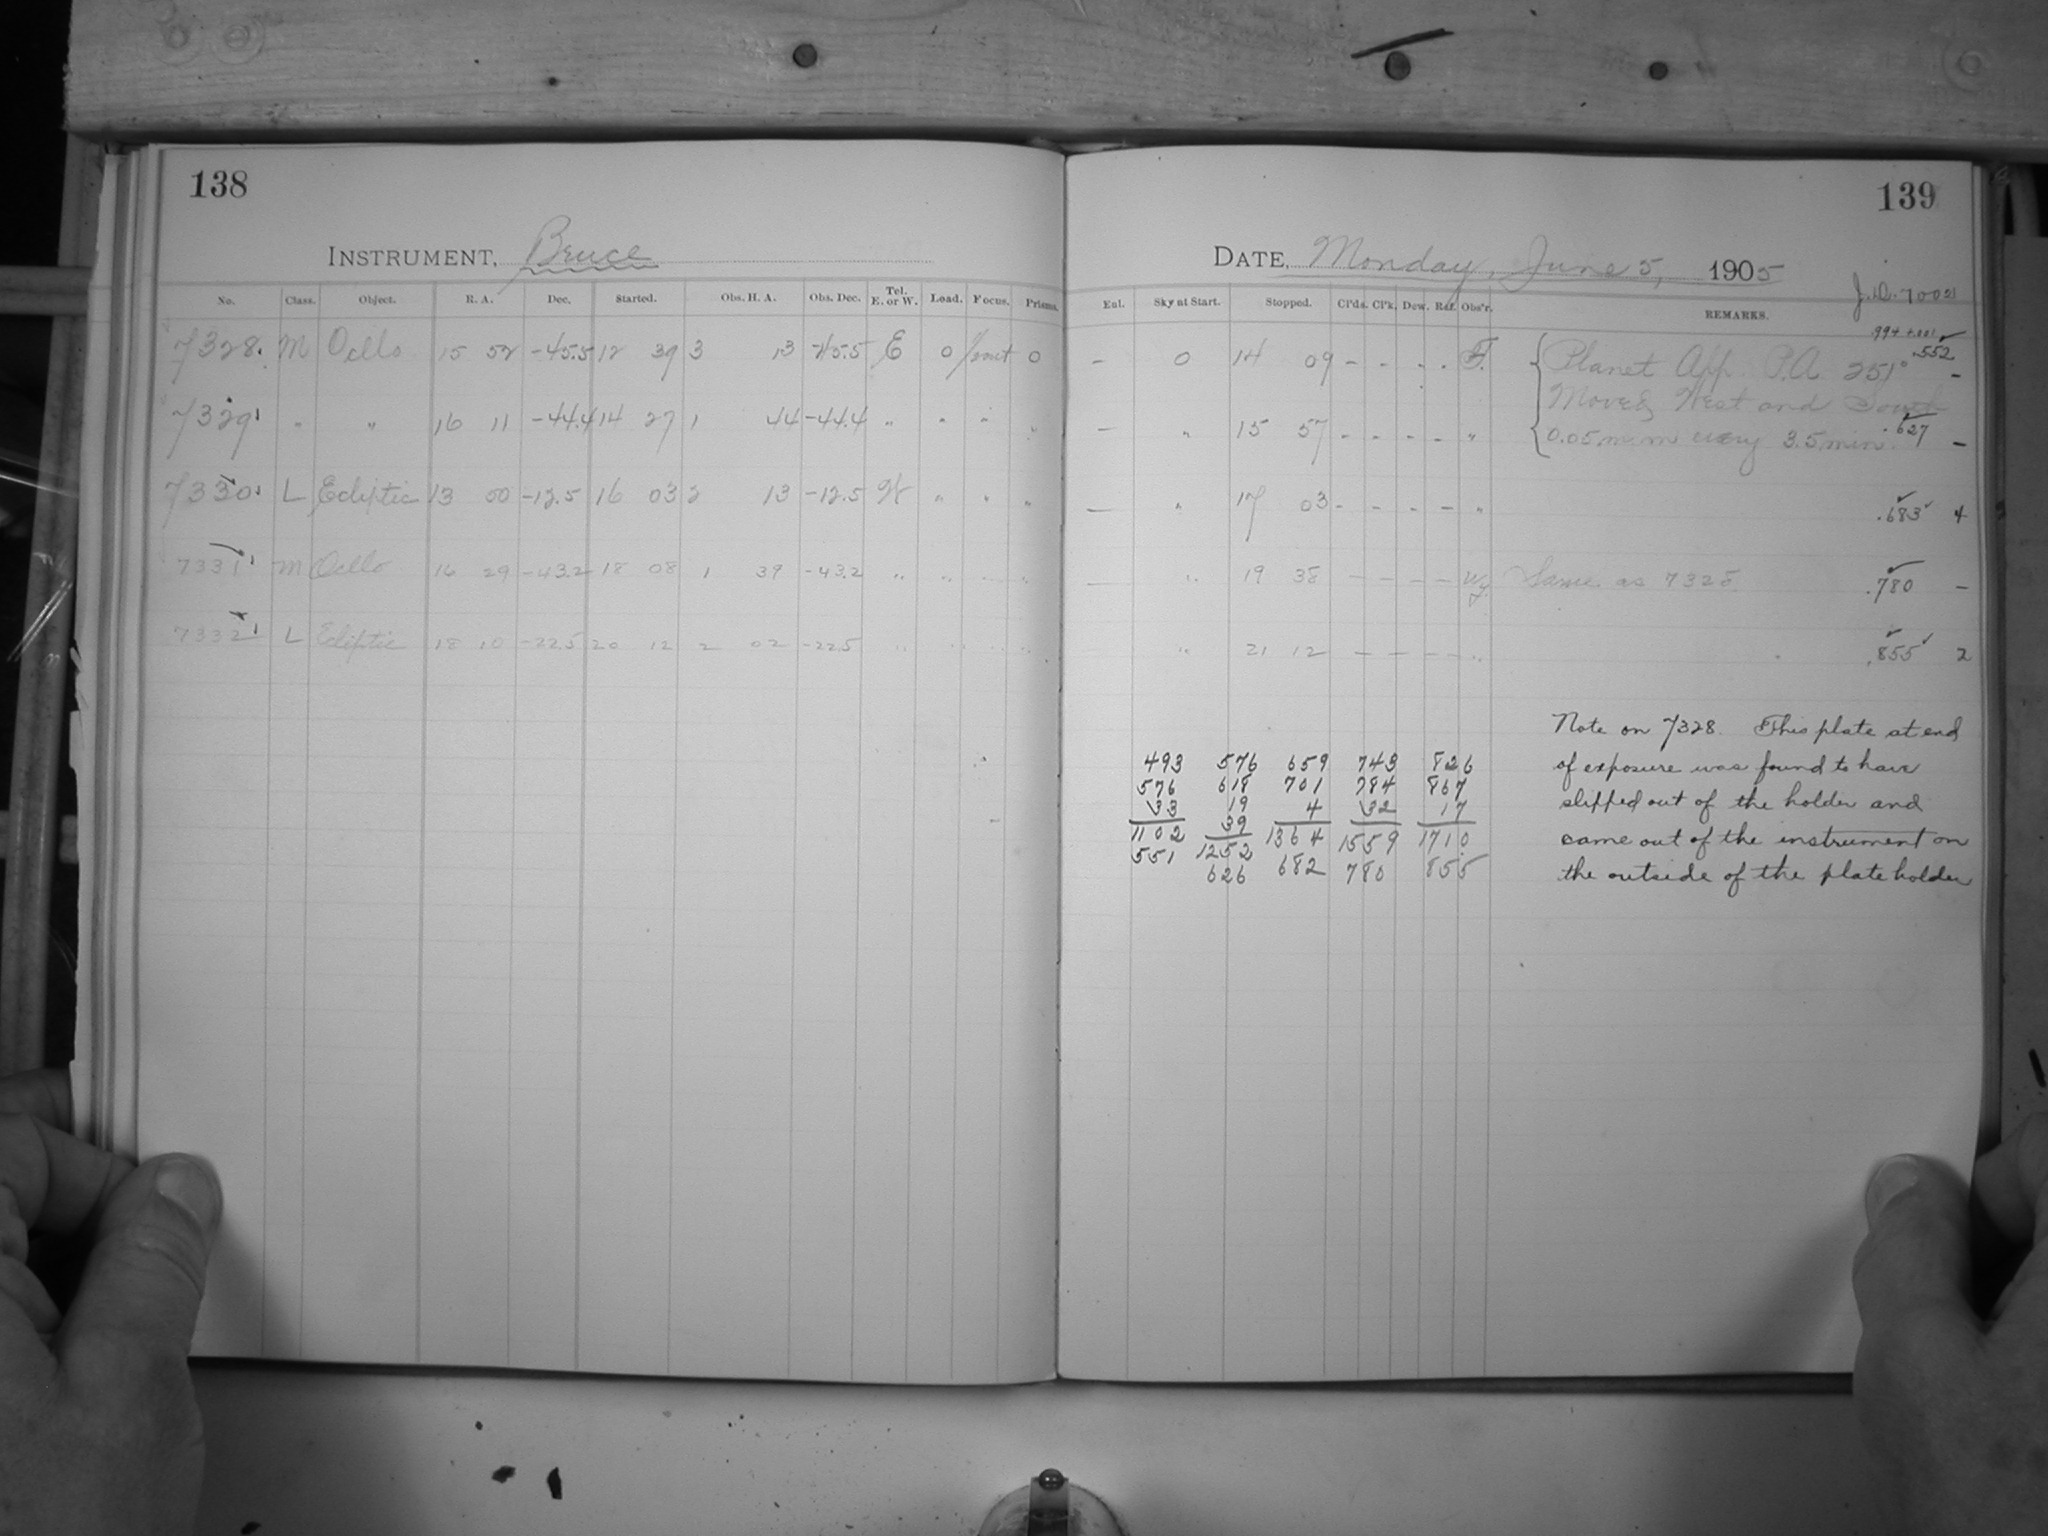 138
INSTRUMENT, Bruce
No. Class. Object. R. A. Dec. Started. Obs. H. A. Obs. Dec. Tel. E. or W. Load. Focus. Prisms.
7328. M Ocllo 15 52 -45.5 12 39 3 13 -45.5 E 0 0
7329 " " 16 11 -44.4 14 27 1 44 -44.4 " " " "
7330 L Ecliptic 13 00 -12.5 16 03 2 13 -12.5 W " " "
7331 M Ocllo 16 29 -43.2 18 08 1 39 -43.2 " " " "
7332 L Ecliptic 18 10 -22.5 20 12 2 02 -22.5 " " " "
139
DATE, Monday, June 5, 1905
J.D. 70021
Ent. Sky at Start. Stopped. Cl'ds. Cl'k. Dew. Ref. Obs'r. REMARKS.
.994 + .001
- 0 14 09 - - . . F. Planet App. P.A. 251° .552 -
Moved West and South
- " 15 57 - - - - " 0.05 m.m every 3.5 min. .627 -
- " 17 03 - - - - " .683 4
- " 19 38 - - - - Same as 7328 .780 -
" 21 12 - - - - " .855 2
Note on 7328. This plate at end
of exposure was found to have
slipped out of the holder and
came out of the instrument on
the outside of the plate holder
493 576 659 743 826
576 618 701 784 867
33 19 4 32 17
39
1102 1252 1364 1559 1710
551 626 682 780 855